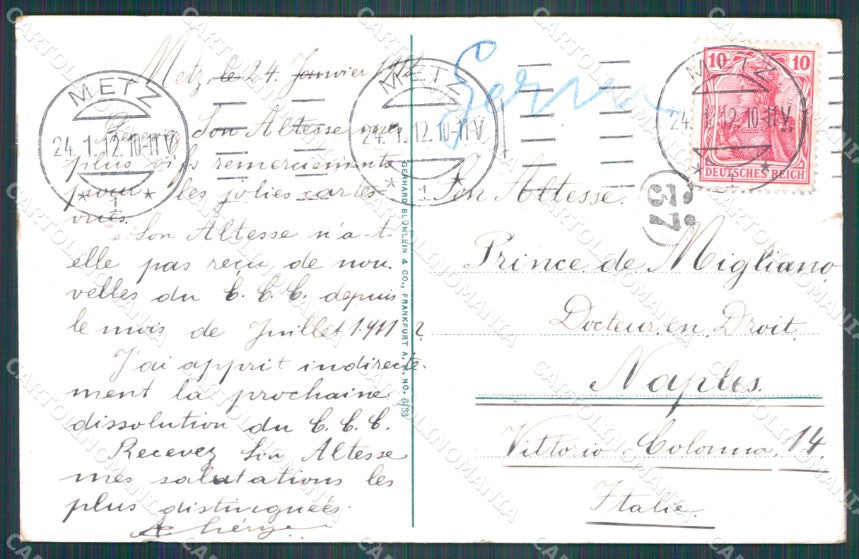 Metz, le 24. Janvier 1912
METZ
24.1.12.10-11V
* 1 *
METZ
24.1.12.10-11V
* 1 *
METZ
24.1.12.10-11V
* 1 *
10 10
DEUTSCHES REICH
Son Altesse mes
plus vifs remerciements
pour les jolies cartes
vues.
Son Altesse n'a-t-
elle pas reçu de nou-
velles du C.C.C. depuis
le mois de Juillet 1911?
J'ai apprit indirecte-
ment la prochaine
dissolution du C.C.C.
Recevez Son Altesse
mes salutations les
plus distinguées.
GERHARD BLÜMLEIN & CO., FRANKFURT A. M. NO.
(57)
Son Altesse.
Prince de Migliano
Docteur en Droit.
Naples.
Vittorio Colonna. 14.
Italie.
CARTOLINOMANIA